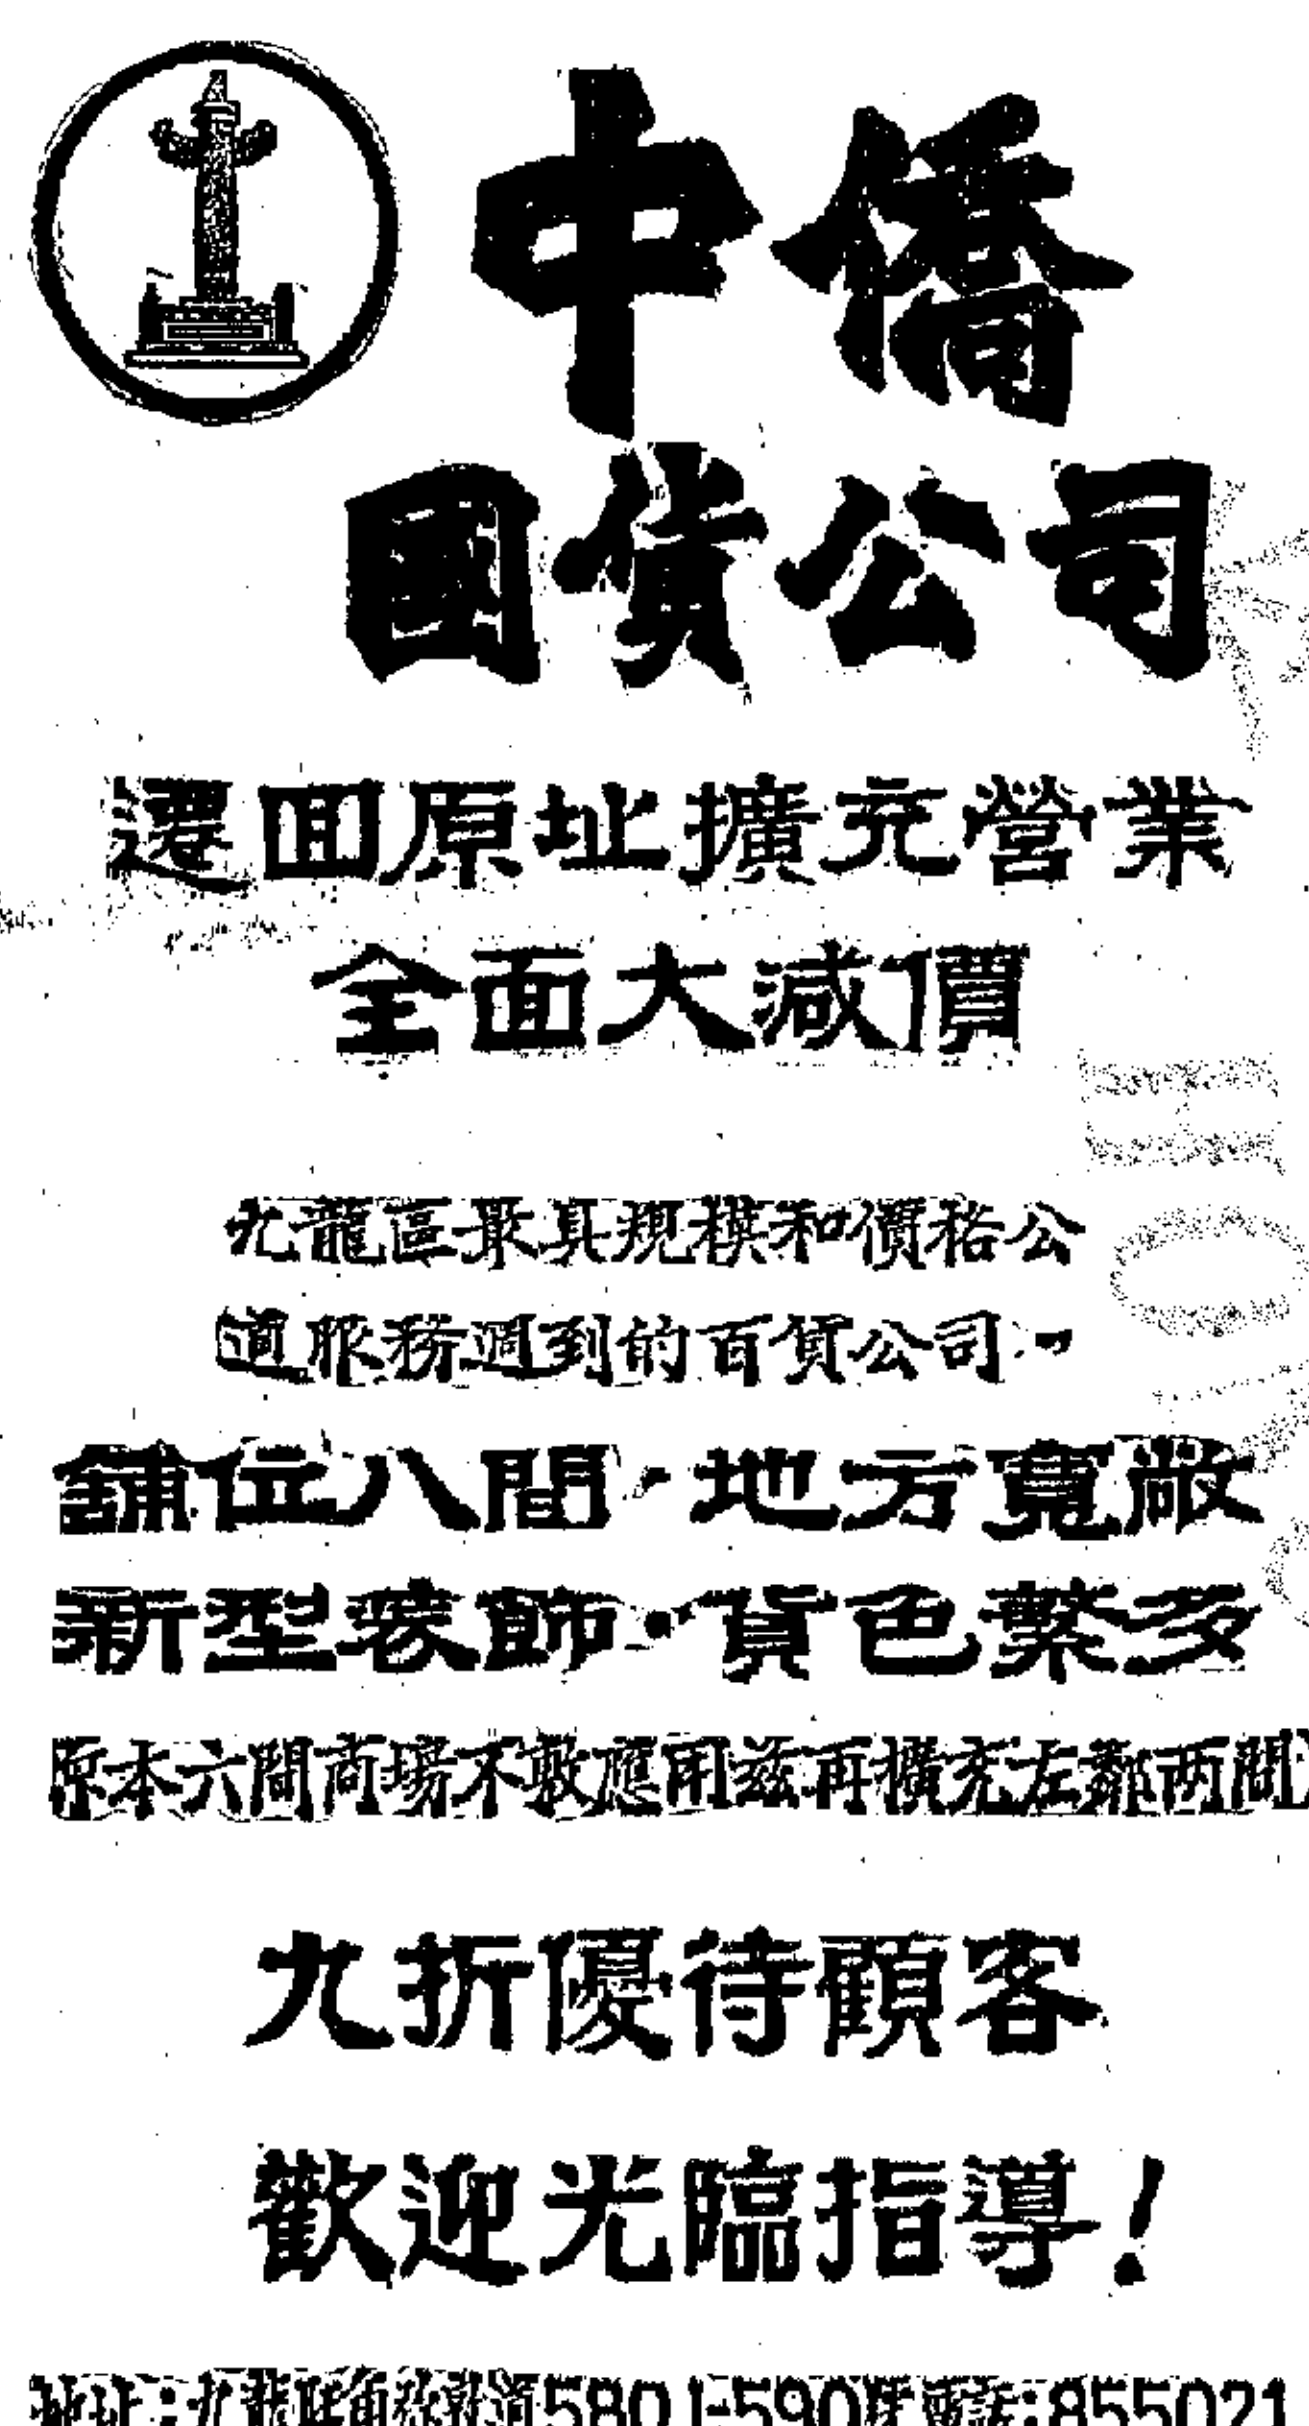 中僑
國貨公司
遷囬原址擴充營業
全面大減價
九龍區最具規模和價格公
道服務週到的百貨公司
舖位八間·地方寬敞
新型裝飾·貨色繁多
原本六間商場不敷應用茲再擴充左鄰两間
九折優待顧客
歡迎光臨指導！
地址：九龍旺角彌敦道580 - 590號電話：855021